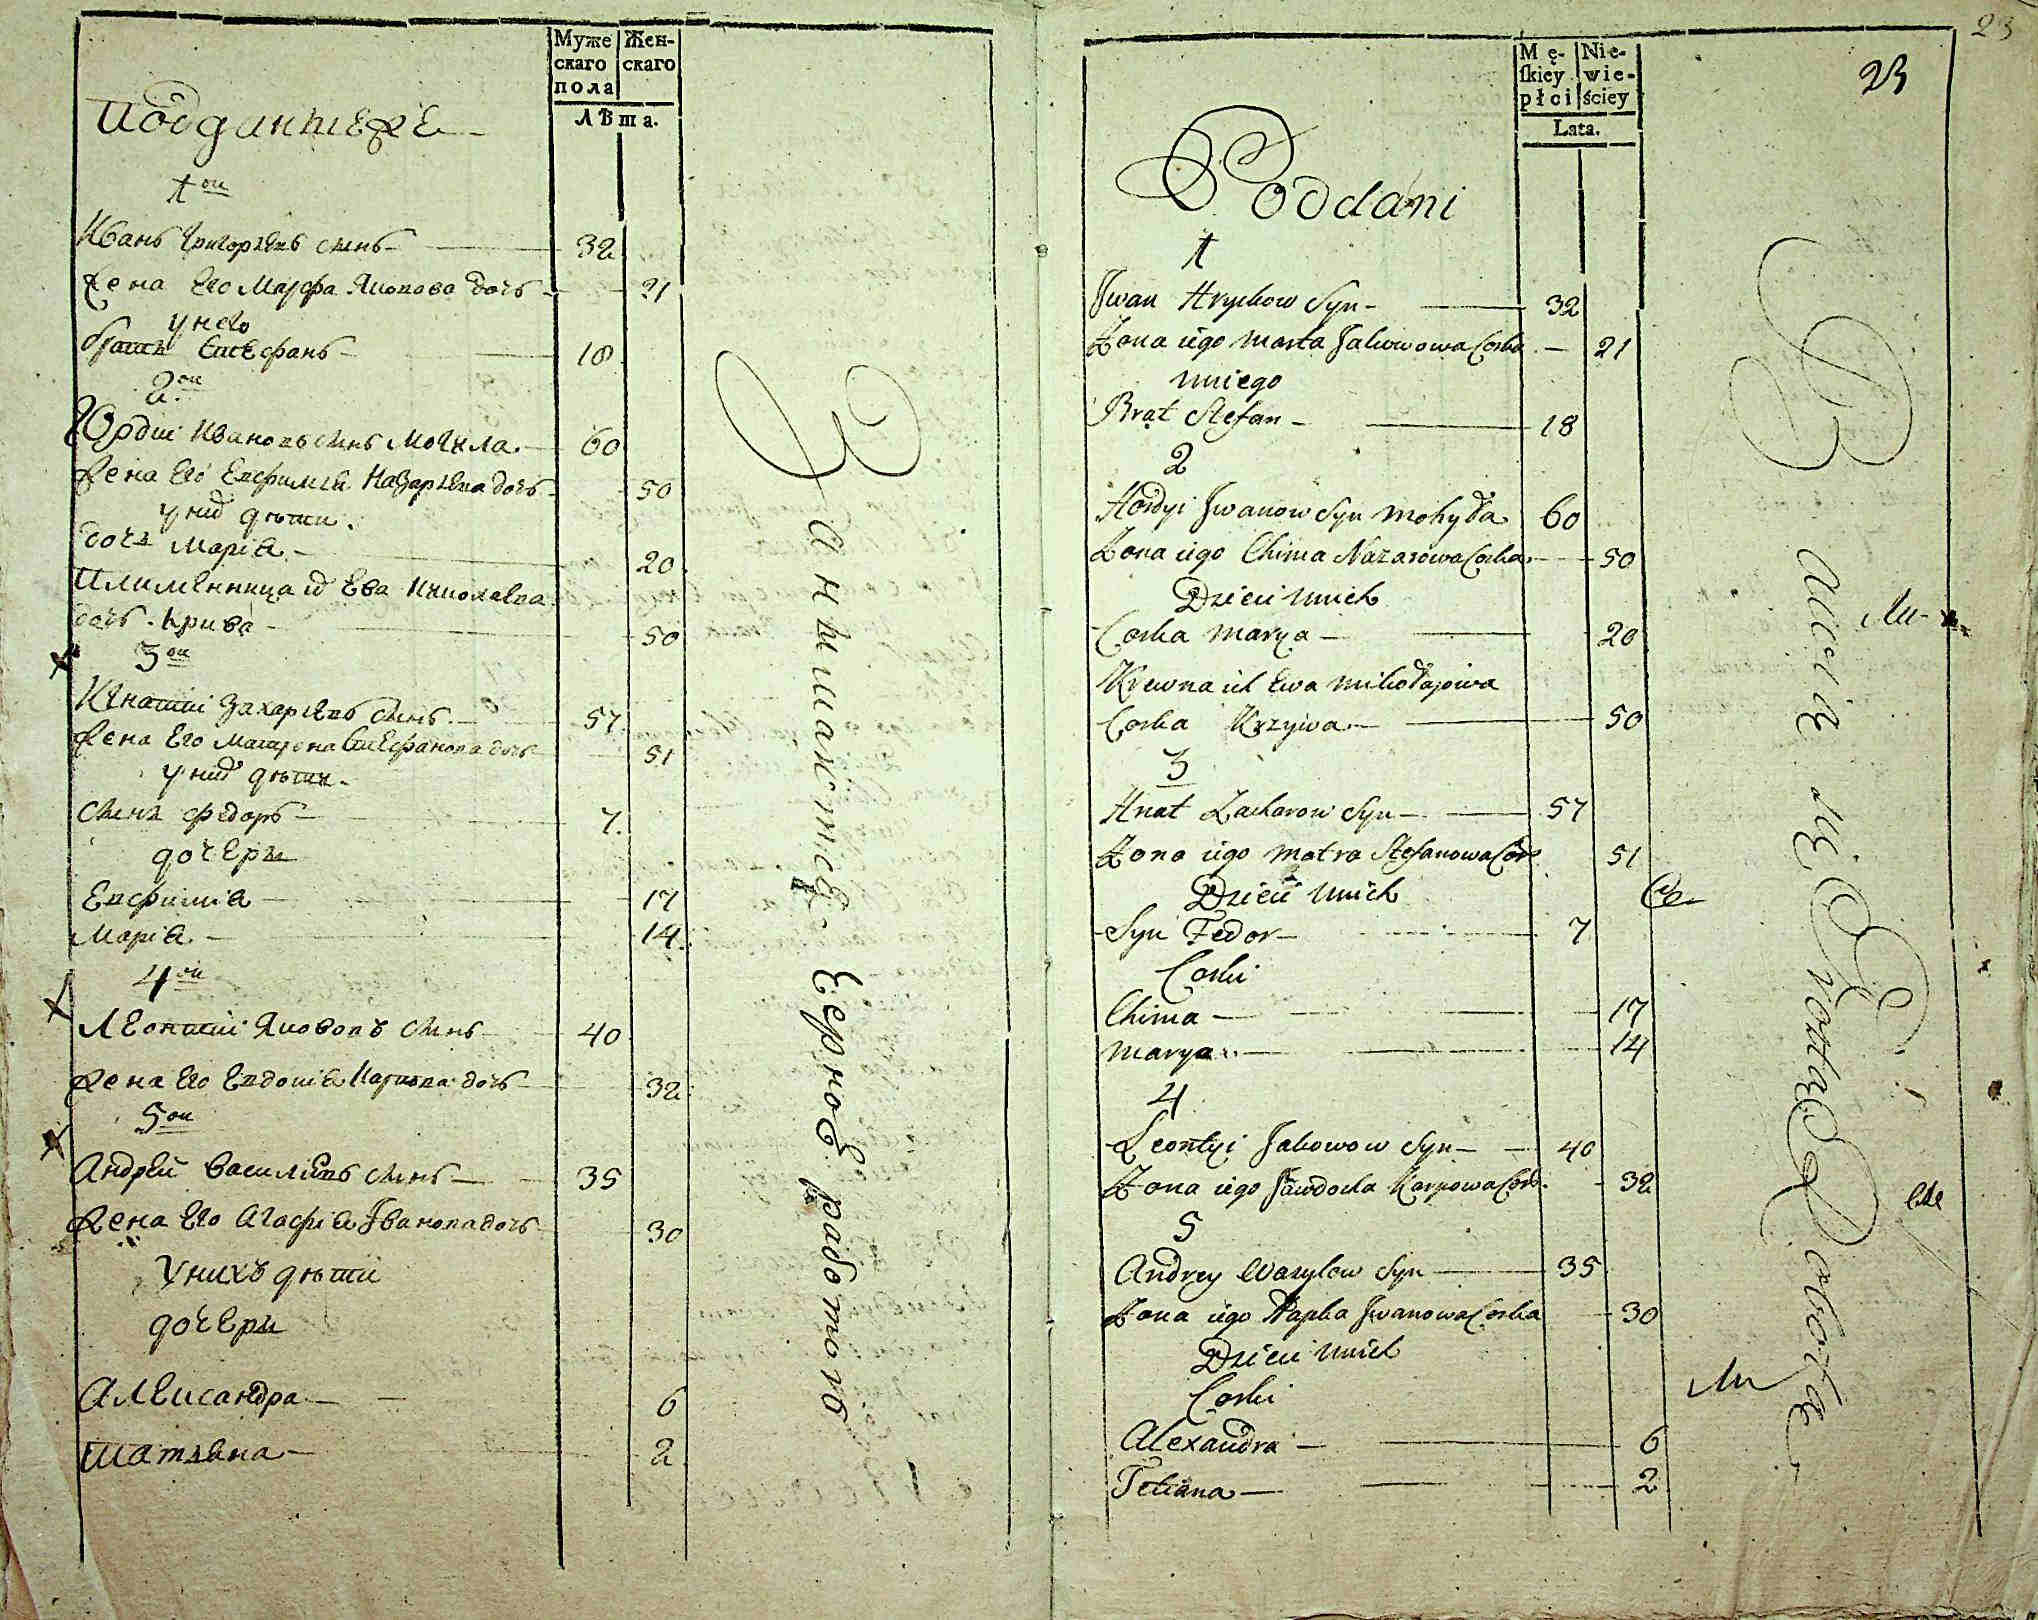 Муже
скаго
пола
Жен-
скаго
Лѣта.
Подданные
1ои
Иванъ Григорьевъ сынъ 32
Жена Его Марфа Яковова дочь 21
у него
братъ Стефанъ 18
2ои
Юрдiи Ивановъ сынъ Могила 60
Жена Его Евфимiя Назарьева дочь 50
у них дѣти
дочь Марiя 20
Племянница их Ева Николаева
дочь Крива 50
3ои
Игнатiи Захарьевъ сынъ 57
Жена Его Матрена Стефанова дочь 51
у них дѣти
Сынъ Федоръ 7
дочери
Евфимiя 17
Марiя 14
4ои
Леонтiи Яковов сынъ 40
Жена Его Евдокiя Карпова дочь 32
5ои
Андрей Василiевъ сынъ 35
Жена Его Агафiя Iванова дочь 30
У нихъ дѣти
дочери
Александра 6
Татьяна 2
Занимаются Черною работою
23
23
Mę-
skiey
płci
Nie-
wie-
ściey
Lata.
Poddani
1
Jwan Hryckow Syn 32
Żona iego Marta Jakowowa Corka 21
U niego
Brat Stefan 18
2
Hordyi Jwanow Syn Mohyła 60
Żona iego Chima Nazarowa Corka 50
Dzieci u nich
Corka Marya 20
Krewna ich Ewa Mikołajowa
Corka Krzywa 50
3
Hnat Zacharow Syn 57
Żona iego Matra Stefanowa Cor 51
Dzieci u nich
Syn Fedor 7
Corki
Chima 17
Marya 14
4
Leontyi Jakowow Syn 40
Żona iego Jawdocka Karpowa Cor. 32
5
Andrey Wasylow Syn 35
Żona iego Hapka Jwanowa Corka 30
Dzieci u nich
Corki
Alexandra 6
Tetiana 2
Bawią się Prostą Robotą